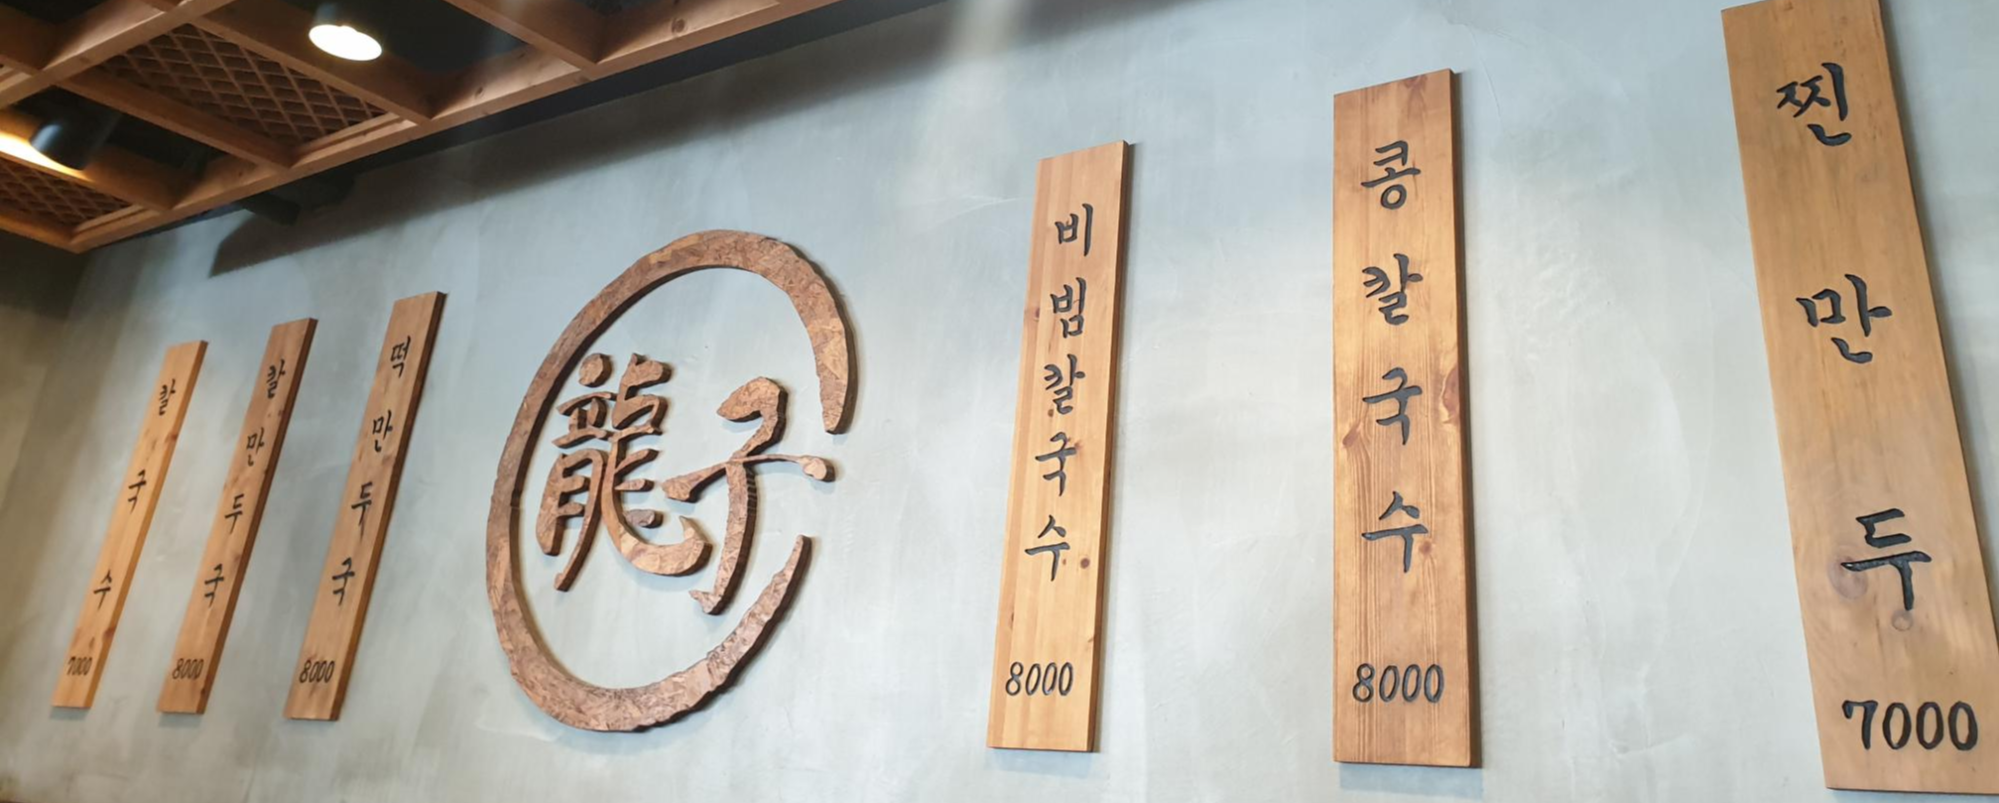 칼국수
7000
칼만두국
8000
떡만두국
8000
龍子
비범칼국수
8000
콩칼국수
8000
찐만두
7000